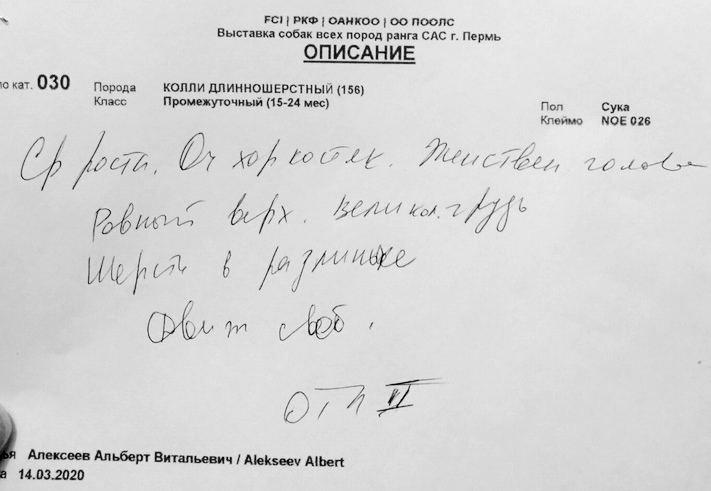 FCI | РКФ | ОАНКОО | ОО ПООЛС
Выставка собак всех пород ранга САС г. Пермь
ОПИСАНИЕ
по кат. 030
Порода КОЛЛИ ДЛИННОШЕРСТНЫЙ (156)
Класс Промежуточный (15-24 мес)
Пол Сука
Клеймо NOE 026
Ср роста. Оч хор костяк. Женствен голова
Ровный верх. Великол. грудь
Шерсть в разлиньке
Движ своб.
ОТЛ II
Алексеев Альберт Витальевич / Alekseev Albert
14.03.2020